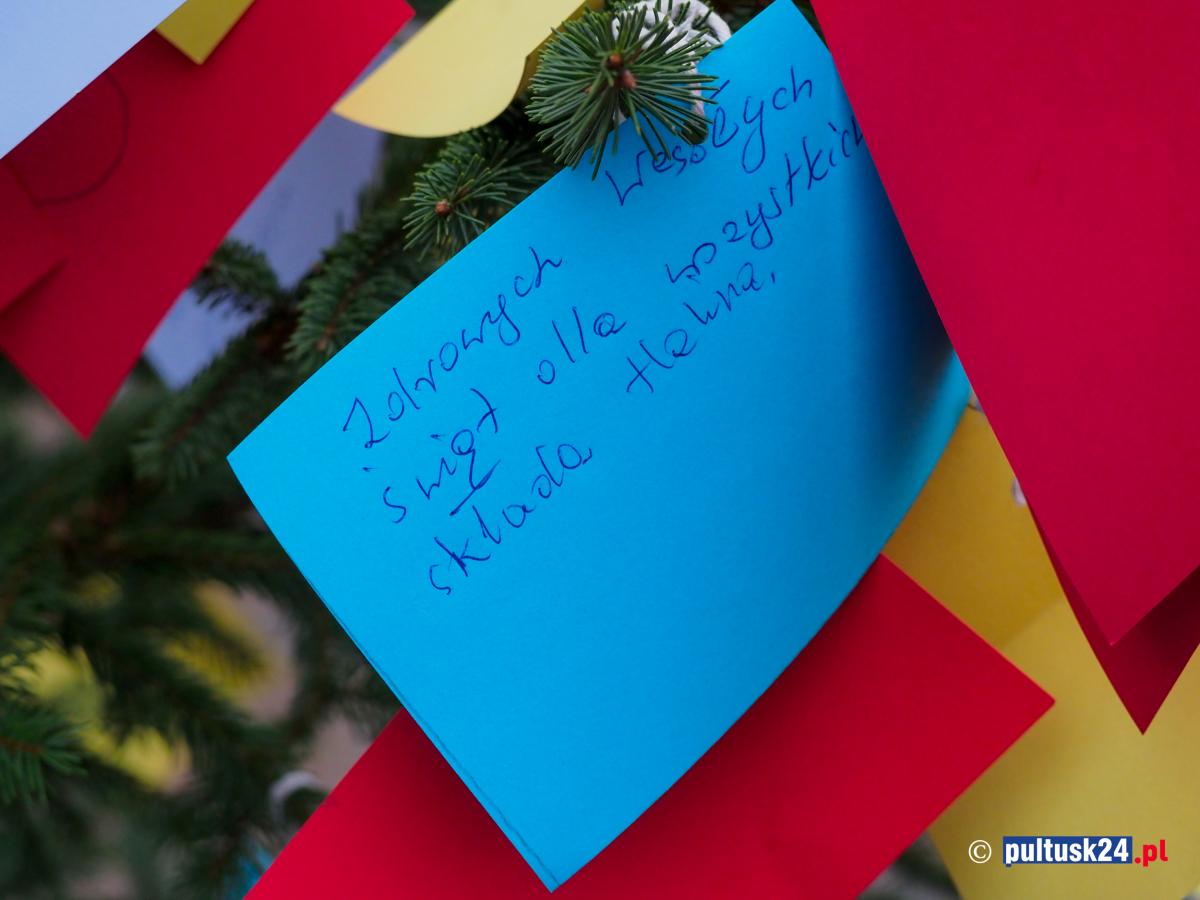 Zdrowych Wesołych
świąt dla wszystkich
składa Hania.
© pultusk24.pl